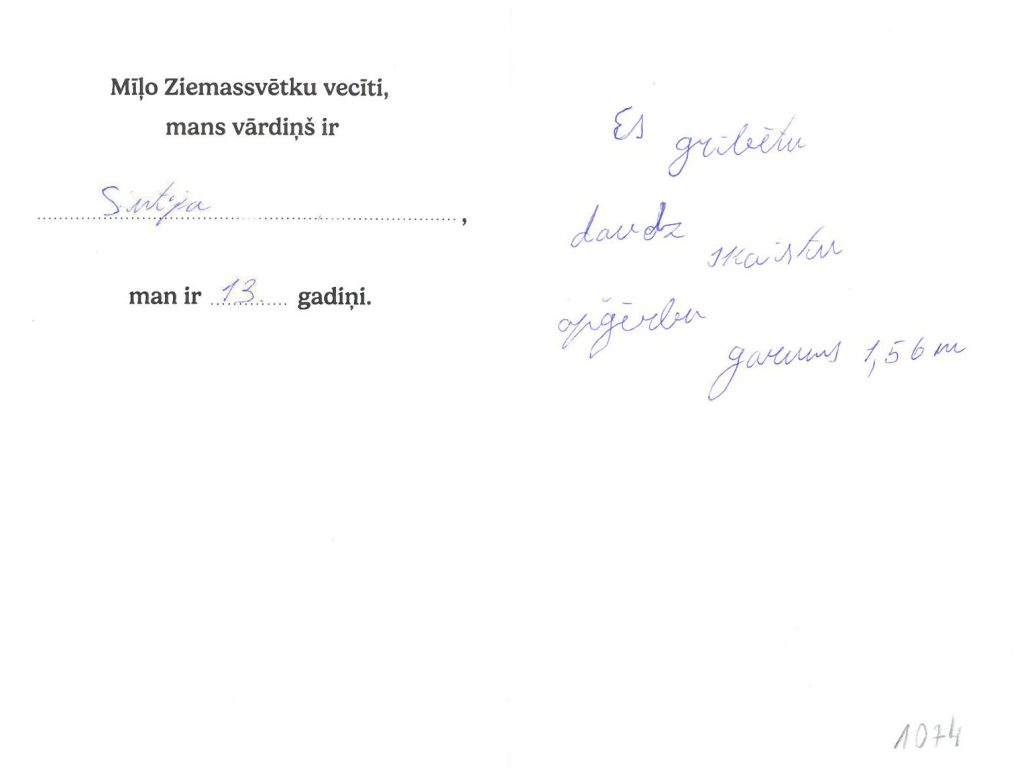 Mīļo Ziemassvētku vecīti,
mans vārdiņš ir
Sintija,
man ir 13. gadiņi.
Es gribētu
daudz skaistu
apģērbu
garums 1,56 m
1074